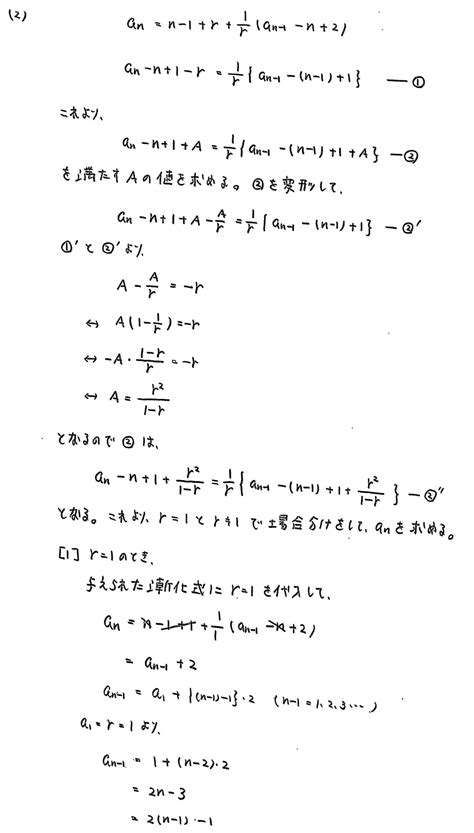 (2)
an = n-1+r+1/r(an-1 -n+2)
an-n+1-r = 1/r{an-1-(n-1)+1} —①
これより、
an-n+1+A = 1/r{an-1-(n-1)+1+A} —②
を満たすAの値を求める。②を変形して、
an-n+1+A-A/r = 1/r{an-1-(n-1)+1} —②'
①'と②'より、
A-A/r = -r
⇔ A(1-1/r) = -r
⇔ -A・(1-r)/r = -r
⇔ A = r²/(1-r)
となるので②は、
an-n+1+r²/(1-r) = 1/r{an-1-(n-1)+1+r²/(1-r)} —②''
となる。これより、r=1とr≠1で場合分けをして、anを求める。
[1] r=1のとき、
与えられた漸化式にr=1を代入して、
an = n-1+1+1/1(an-1-n+2)
= an-1+2
an-1 = a1+{(n-1)-1}・2 (n-1=1,2,3…)
a1=r=1より、
an-1 = 1+(n-2)・2
= 2n-3
= 2(n-1)・-1